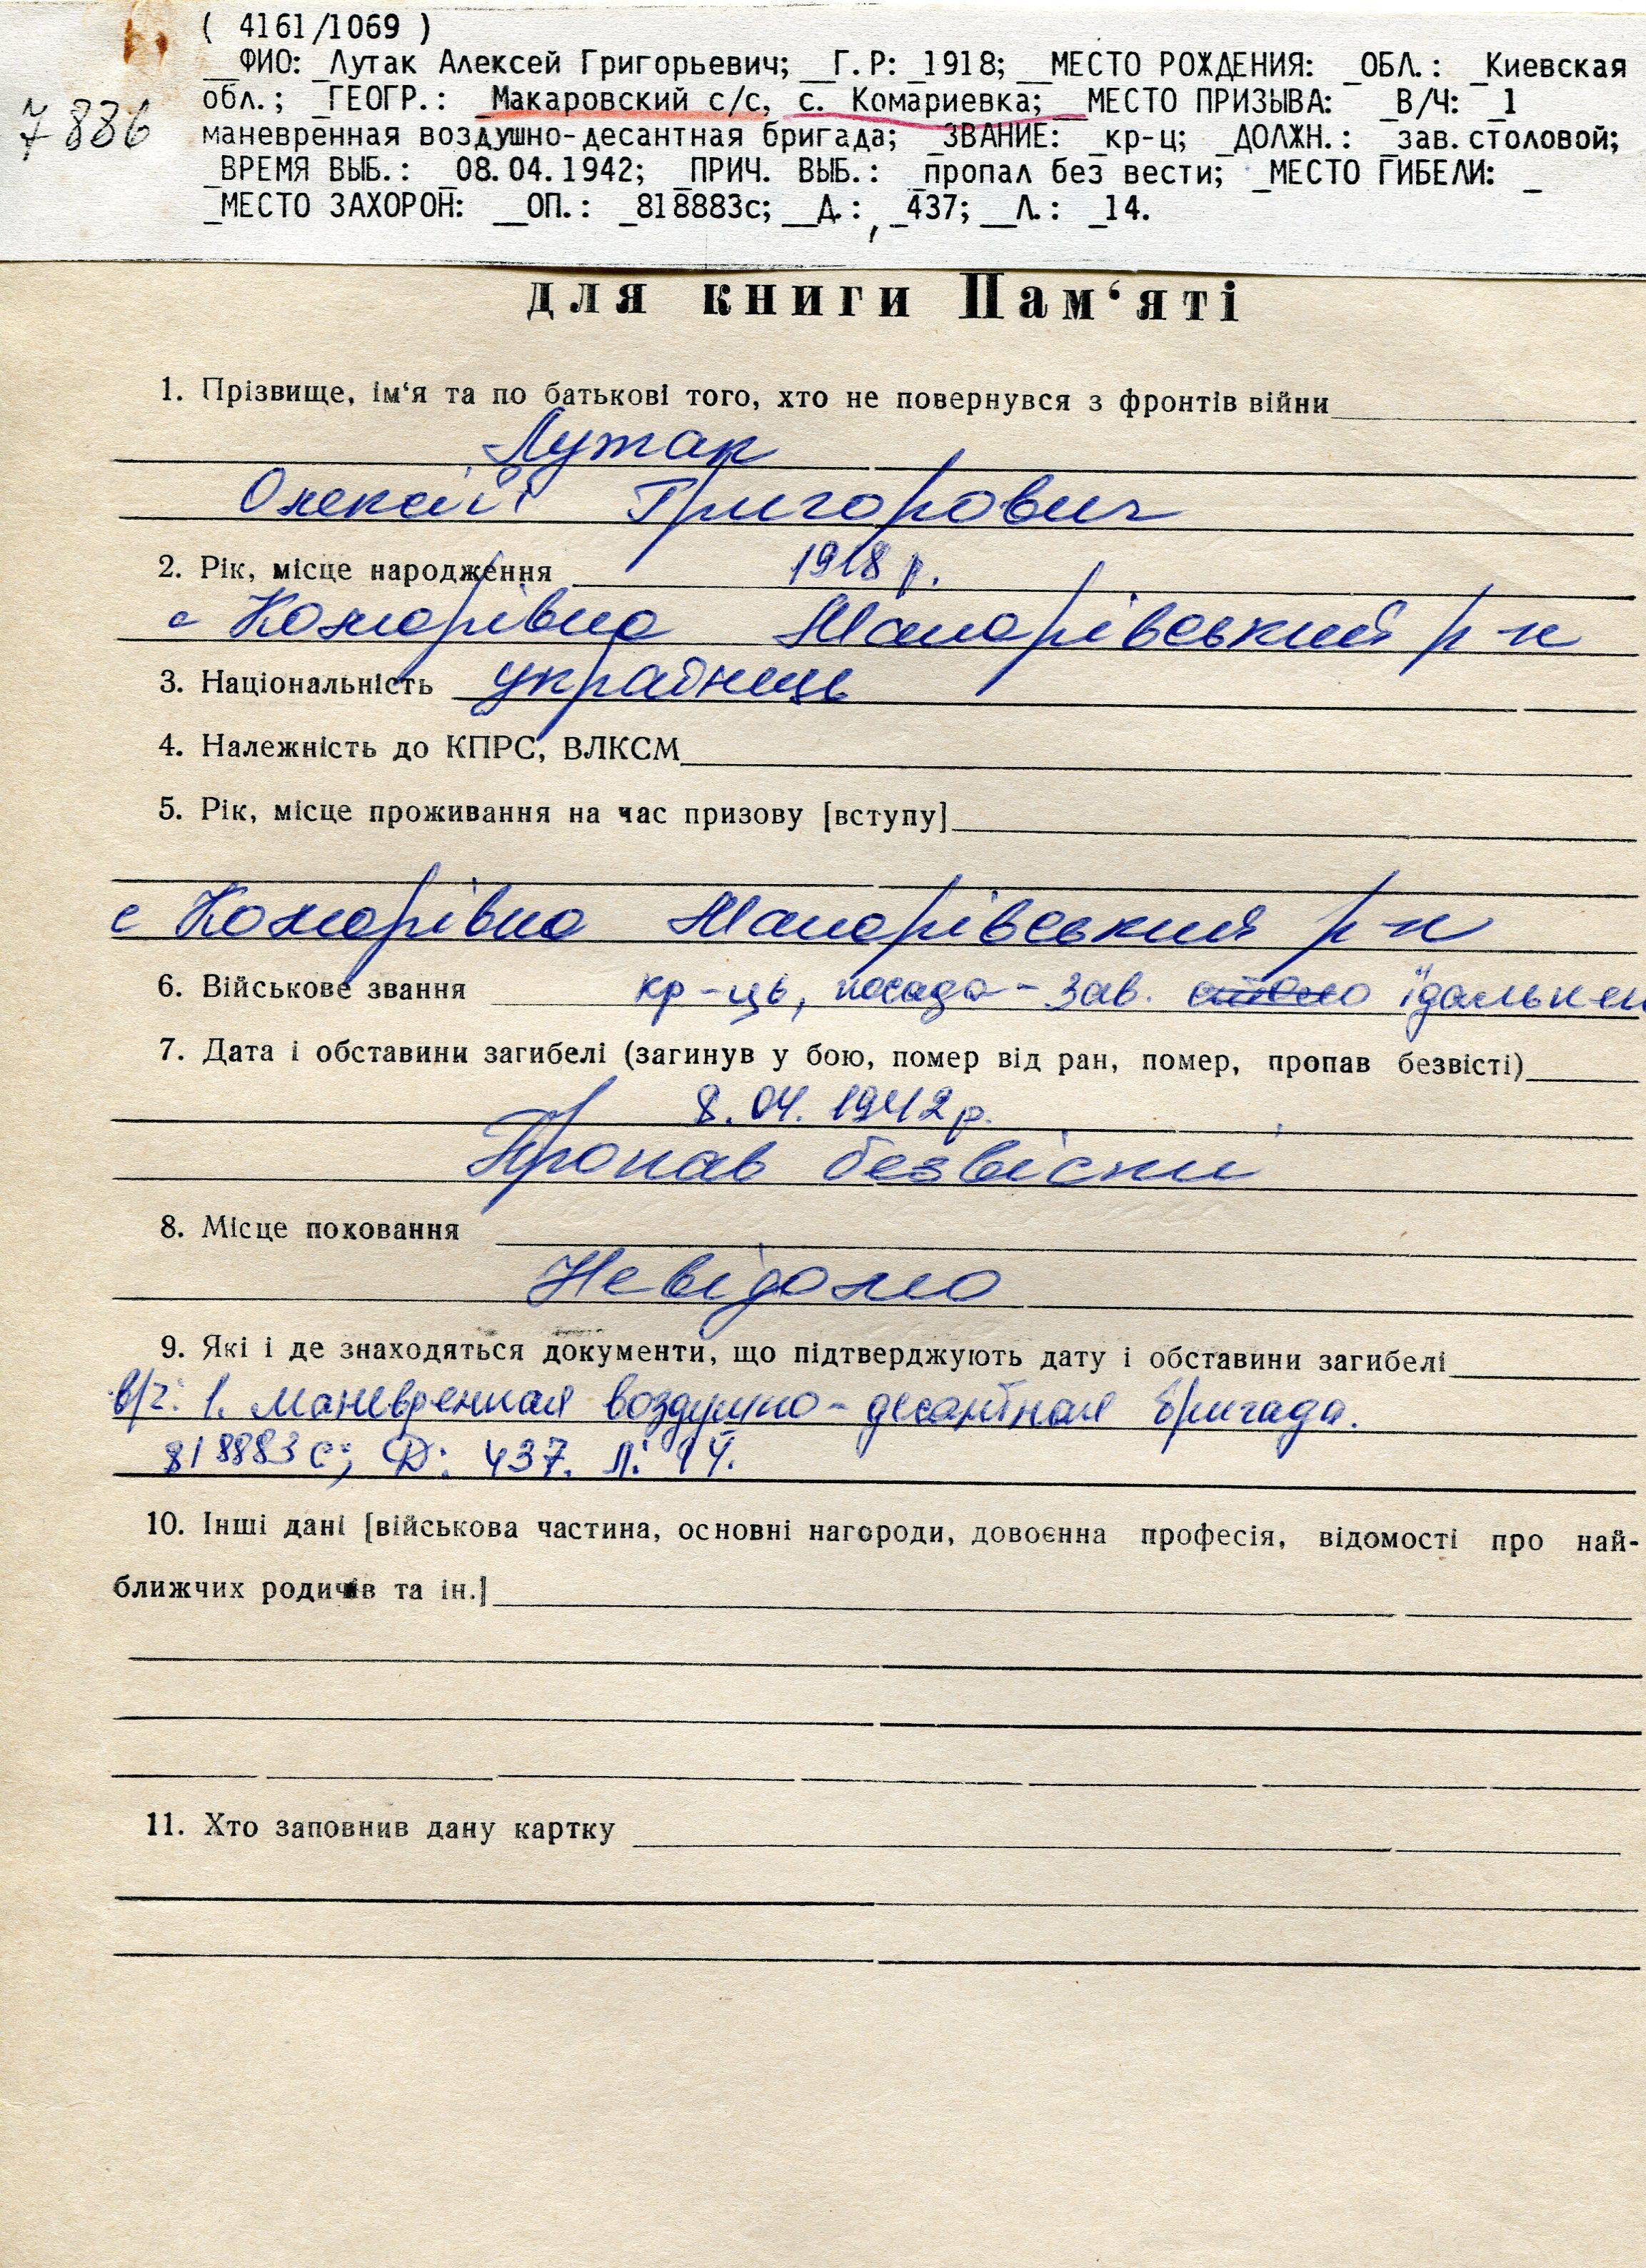 ( 4161/1069 )
__ФИО: _Лутак Алексей Григорьевич; __Г.Р: _1918; __МЕСТО РОЖДЕНИЯ: _ОБЛ.: _Киевская
7886
обл.; _ГЕОГР.: _Макаровский с/с, с. Комариевка; __МЕСТО ПРИЗЫВА: _В/Ч: _1
маневренная воздушно-десантная бригада; _ЗВАНИЕ: _кр-ц; _ДОЛЖН.: _зав.столовой;
_ВРЕМЯ ВЫБ.: _08.04.1942; _ПРИЧ. ВЫБ.: _пропал без вести; _МЕСТО ГИБЕЛИ: _
_МЕСТО ЗАХОРОН: __ОП.: _818883с; __Д.: _437; __Л.: _14.
для книги Пам‘яті
1. Прізвище, ім‘я та по батькові того, хто не повернувся з фронтів війни
Лутак
Олексій Григорович
2. Рік, місце народження 1918 р.
с Комарівка Макарівський р-н
3. Національність українець
4. Належність до КПРС, ВЛКСМ
5. Рік, місце проживання на час призову [вступу]
с Комарівка Макарівський р-н
6. Військове звання кр-ць, посада - зав. їдальнею
7. Дата і обставини загибелі (загинув у бою, помер від ран, помер, пропав безвісті)
8.04.1942р.
Пропав безвісти
8. Місце поховання
Невідомо
9. Які і де знаходяться документи, що підтверджують дату і обставини загибелі
в/ч: 1. маневренная воздушно-десантная бригада.
818883 с; Д: 437. Л: 14.
10. Інші дані [військова частина, основні нагороди, довоєнна професія, відомості про най-
ближчих родичів та ін.]
11. Хто заповнив дану картку